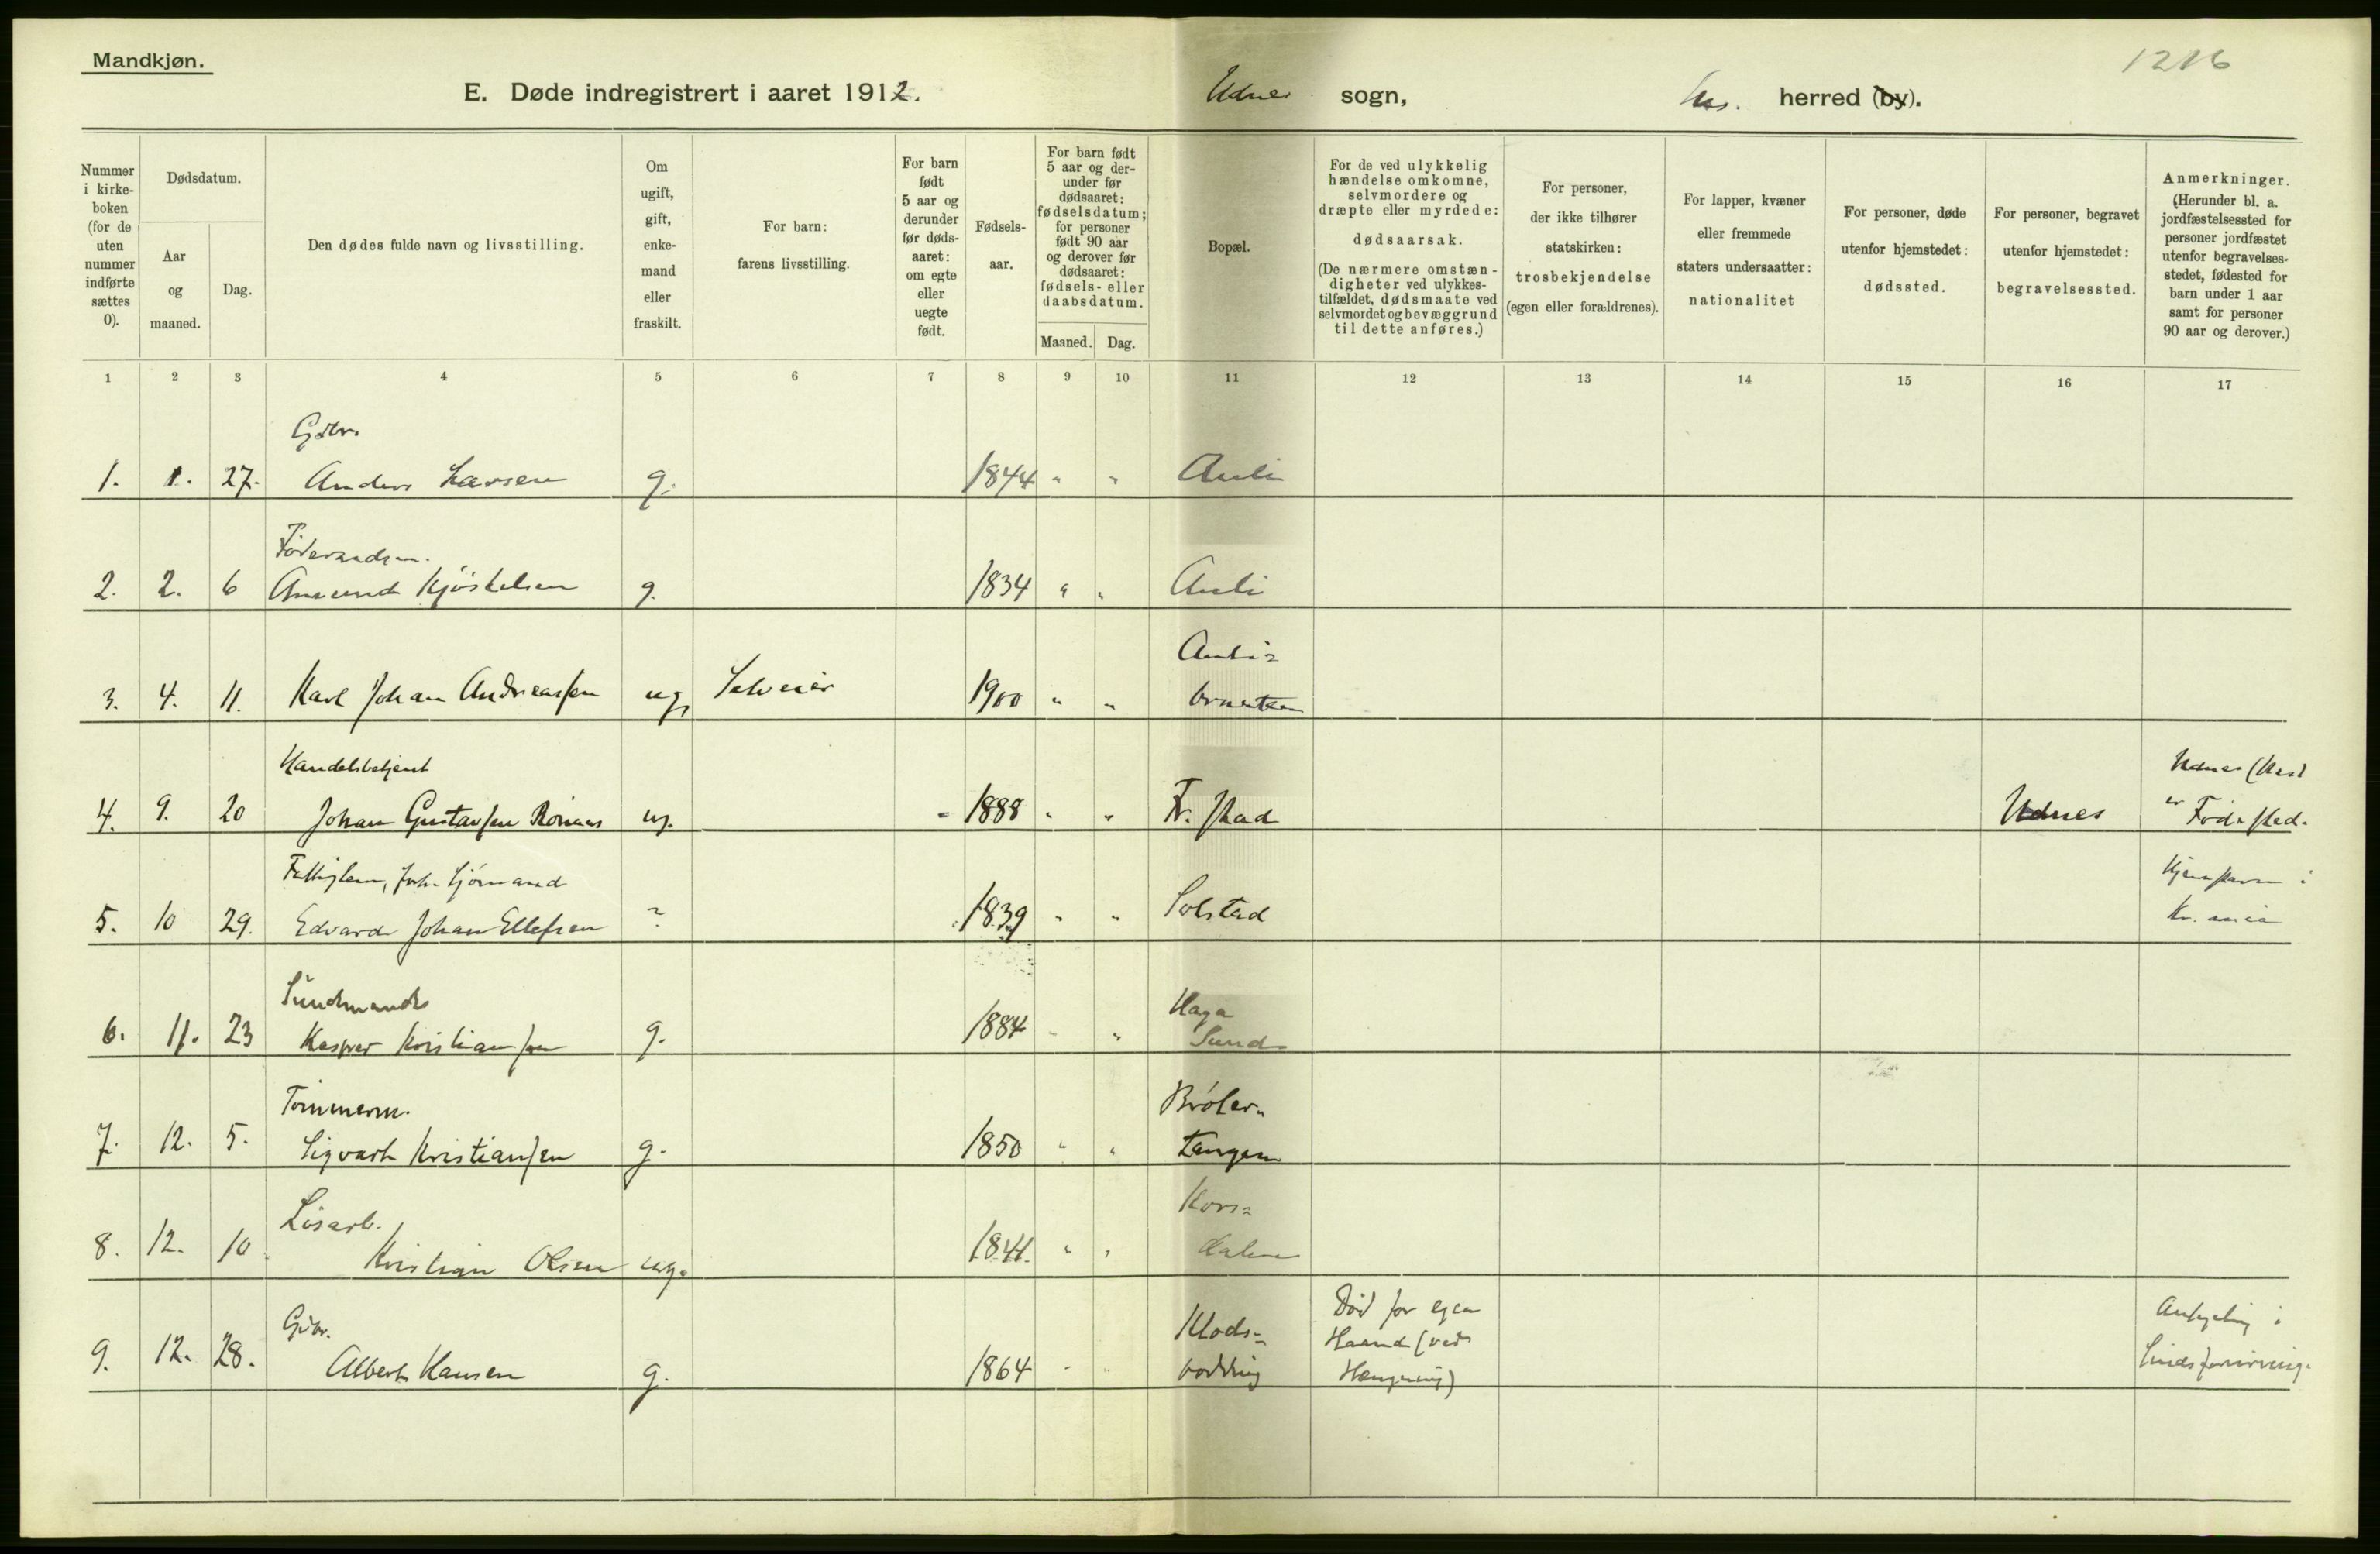 Mandkjøn.
1216
E. Døde indregistrert i aaret 1912.
Udnes sogn,
Nes. herred (by).
Nummer
i kirke-
boken
(for de
uten
nummer
indførte
sættes
0).
Dødsdatum.
Aar
og
maaned.
Dag.
Den dødes fulde navn og livsstilling.
Om
ugift,
gift,
enke-
mand
eller
fraskilt.
For barn:
farens livsstilling.
For barn
født
5 aar og
derunder
før døds-
aaret:
om egte
eller
uegte
født.
Fødsels-
aar.
For barn født
5 aar og der-
under før
dødsaaret:
fødselsdatum;
for personer
født 90 aar
og derover før
dødsaaret:
fødsels- eller
daabsdatum.
Maaned.
Dag.
Bopæl.
For de ved ulykkelig
hændelse omkomne,
selvmordere og
dræpte eller myrdede:
dødsaarsak.
(De nærmere omstæn-
digheter ved ulykkes-
tilfældet, dødsmaate ved
selvmordet og bevæggrund
til dette anføres.)
For personer,
der ikke tilhører
statskirken:
trosbekjendelse
(egen eller forældrenes).
For lapper, kvæner
eller fremmede
staters undersaatter:
nationalitet
For personer, døde
utenfor hjemstedet:
dødssted.
For personer, begravet
utenfor hjemstedet:
begravelsessted.
Anmerkninger.
(Herunder bl. a.
jordfæstelsessted for
personer jordfæstet
utenfor begravelses-
stedet, fødested for
barn under 1 aar
samt for personer
90 aar og derover.)
1 2 3 4 5 6 7 8 9 10 11 12 13 14 15 16 17
Gdbr.
1. 1. 27. Anders Larsen g. 1844 " " Auli
Föderaadsm.
2. 2. 6 Amund Kjöstelsen g. 1834 " " Auli
Auli=
3. 4. 11. Karl Johan Andreassen ug. Selveier 1900 " "
Handelsbetjent
Udnes (Nes)
4. 9. 20 Johan Gustavsen Rönaas ug. 1888 " " Fr. stad Udnes er Födested.
Fattiglem, forh. Sjömand
Hjemstavn i
5. 10 29. Edvard Johan Ellefsen ? 1839 " " Solstad Kr. ania
Sundmand
Haga
6. 11. 23 Kasper Kristiansen g. 1884 " " Sund
Tömmerm.
Bröler-
7. 12. 5. Sigvart Kristiansen g. 1850 " " tangen
Lösarb.
Kors=
8. 12. 10 Kristian Olsen ug. 1841. " " dalen
Gdbr.
Klods=
Död for egen
Haand (ved
Hængning)
9. 12. 28. Albert Hansen g. 1864 " " bödding
Sindsforvirring.